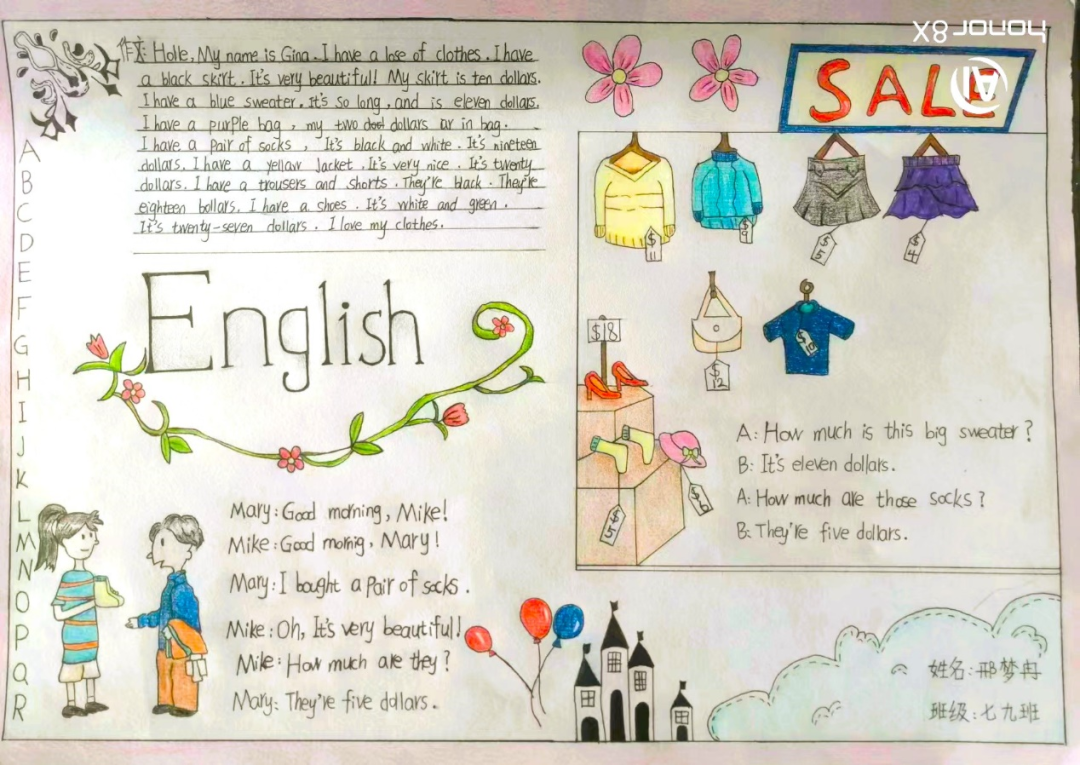 HONOR 8X
AI
SALE
作文: Holle, My name is Gina. I have a lose of clothes. I have
a black skirt. It's very beautiful! My skirt is ten dollars.
I have a blue sweater. It's so long, and is eleven dollars.
I have a purple bag, my two dollars ar in bag.
I have a pair of socks, It's black and white. It's nineteen
dollars. I have a yellow Jacket. It's very nice. It's twenty
dollars. I have a trousers and shorts. They're black. They're
eighteen bollars. I have a shoes. It's white and green.
It's twenty-seven dollars. I love my clothes.
A
B
C
D
E
F
G
H
I
J
K
L
M
N
O
P
Q
R
English
$11
$9
$5
$4
$18
$12
A: How much is this big sweater?
B: It's eleven dollars.
A: How much are those socks?
B: They're five dollars.
Mary: Good morning, Mike!
Mike: Good mornig, Mary!
Mary: I bought a pair of socks.
Mike: Oh, It's very beautiful!
Mike: How much are they?
Mary: They're five dollars.
姓名:邢梦冉
班级:七九班